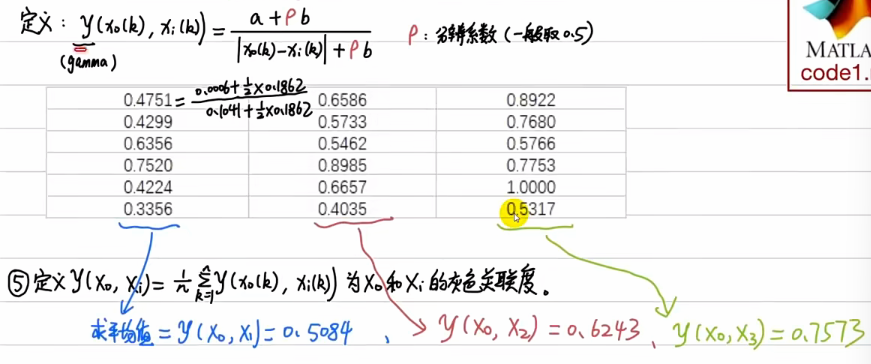 定义: γ(x₀(k), xᵢ(k)) = (a + ρb) / (|x₀(k)-xᵢ(k)| + ρb) ρ: 分辨系数 (一般取0.5)
(gamma)
MATLA
code1.
0.4751 = (0.0006+½×0.1862) / (0.1041+½×0.1862) 0.6586 0.8922
0.4299 0.5733 0.7680
0.6356 0.5462 0.5766
0.7520 0.8985 0.7753
0.4224 0.6657 1.0000
0.3356 0.4035 0.5317
⑤定义 γ(x₀, xᵢ) = 1/n ∑ₖ₌₁ⁿ γ(x₀(k), xᵢ(k)) 为x₀和xᵢ的灰色关联度。
求平均值 = γ(x₀, x₁) = 0.5084 、 γ(x₀, x₂) = 0.6243 、 γ(x₀, x₃) = 0.7573